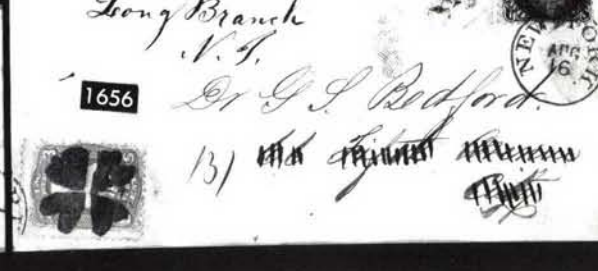 Long Branch
N. J.
NEW YORK
AUG
16
1656
Dr G S Bedford.
131 Fifth